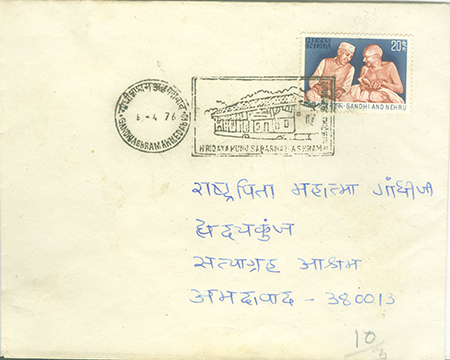 20
GANDHI AND NEHRU
GANDHI ASHRAM AHMEDABAD
6-4 76
HRIDAYA KUNJ SABARMATI ASHRAM
राष्ट्रपिता महात्मा गांधीजी
ह्रेदयकुंज
सत्याग्रह आश्रम
अमदावाद - 380013
10